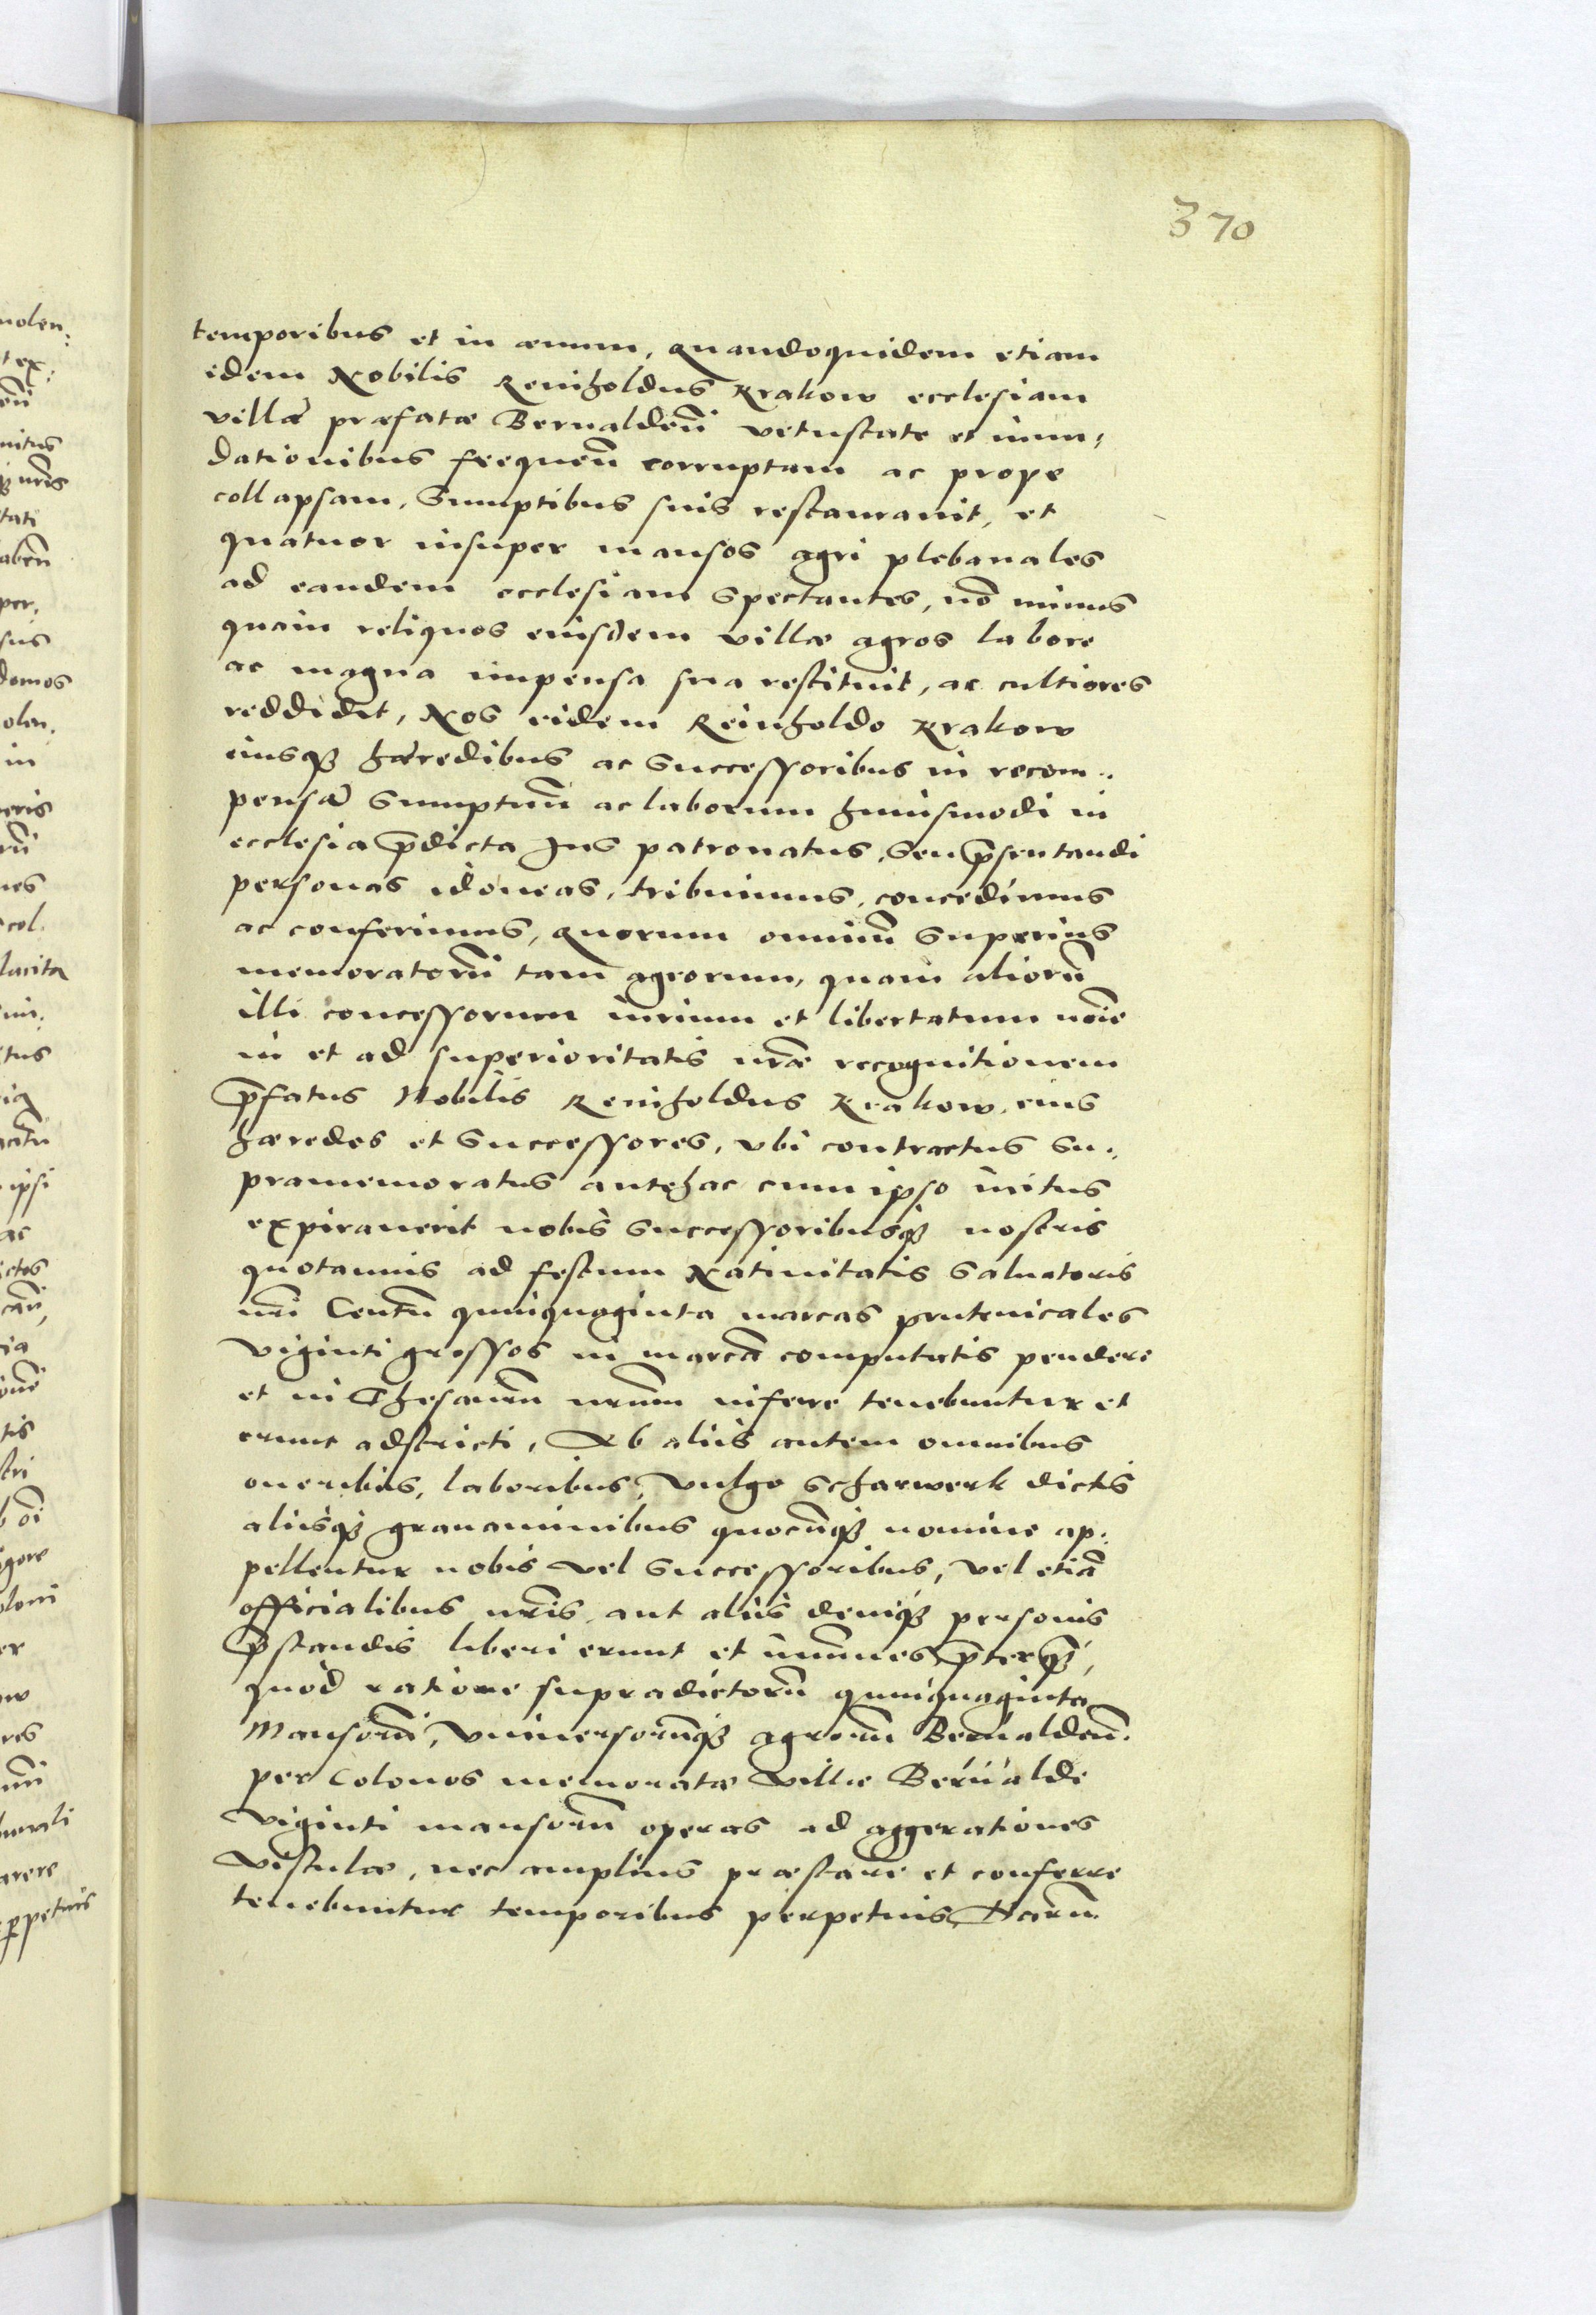 370
temporibus et in æuum, Quandoquidem etiam
idem Nobilis Reinholdus Krakow ecclesiam
villæ præfatæ Beruualdeñ vetustate et inun,
dationibus frequeñ corruptam ac prope
collapsam, Sumptibus suis restaurauit, et
quatuor insuper mansos agri plebanales
ad eandem ecclesiam spectantes, nõ minus
quam reliquos eiusdem villæ agros labore
ac magna impensa sua restituit, ac cultiores
reddidit, Nos eidem Reinholdo Krakow
eiusqꝫ hæredibus ac Successoribus in recom..
pensã Sumptuũ ac laborum huiusmodi in
ecclesia p̄dicta Jus patronatus, Seu p̄sentandi
personas idoneas, tribuimus, concedimus
ac conferimus, Quorum omniũ Superius
memoratorũ tam agrorum, quam aliorũ
illi concessorum iurium et libertatum noĩe
in et ad superioritatis nr̃æ recognitionem
p̄fatus Nobilis Reinholdus Krakow, eius
hæredes et Successores, vbi contractus Su..
pramemoratus antehac cum ipso initus
expirauerit nobis Successoribusqꝫ nostris
quotannis ad festum Natiuitatis Saluatoris
nr̃i Centũ quinquaginta marcas prutenicales
Viginti grossos in marcã computatis pendere
et in Thesaurũ nr̃um inferre tenebuntur et
erunt adstricti, Ab aliis autem omnibus
oneribus, laboribus, Vulgo Scharwerk dictis
aliisqꝫ grauaminibus quocũqꝫ nomine ap..
pellentur nobis vel Successoribus, vel etiã
officialibus nr̃is, aut aliis deniqꝫ personis
p̄standis liberi erunt et im̃unes p̄terqꝫ,
quod ratione supradictorũ quinquaginta
Mansorũ, Vniuersorũqꝫ agrorũ Beruualdeñ.
per Colonos memoratæ Villæ Beruualde
Viginti mansorũ operas ad aggerationes
Vistulæ, nec amplius præstare et conferre
tenebuntur temporibus perpetuis, Harũ